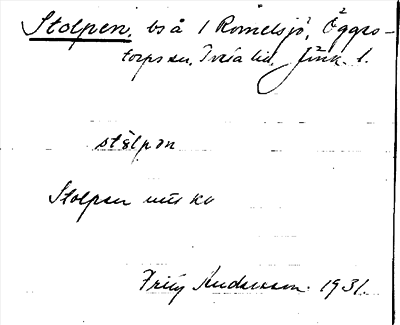 Stolpen, bså i Romelsjö, Öggestorps sn, Tveta hd, Jönk. l.
stålpən
Stolpen
Fritz Andersson 1931.